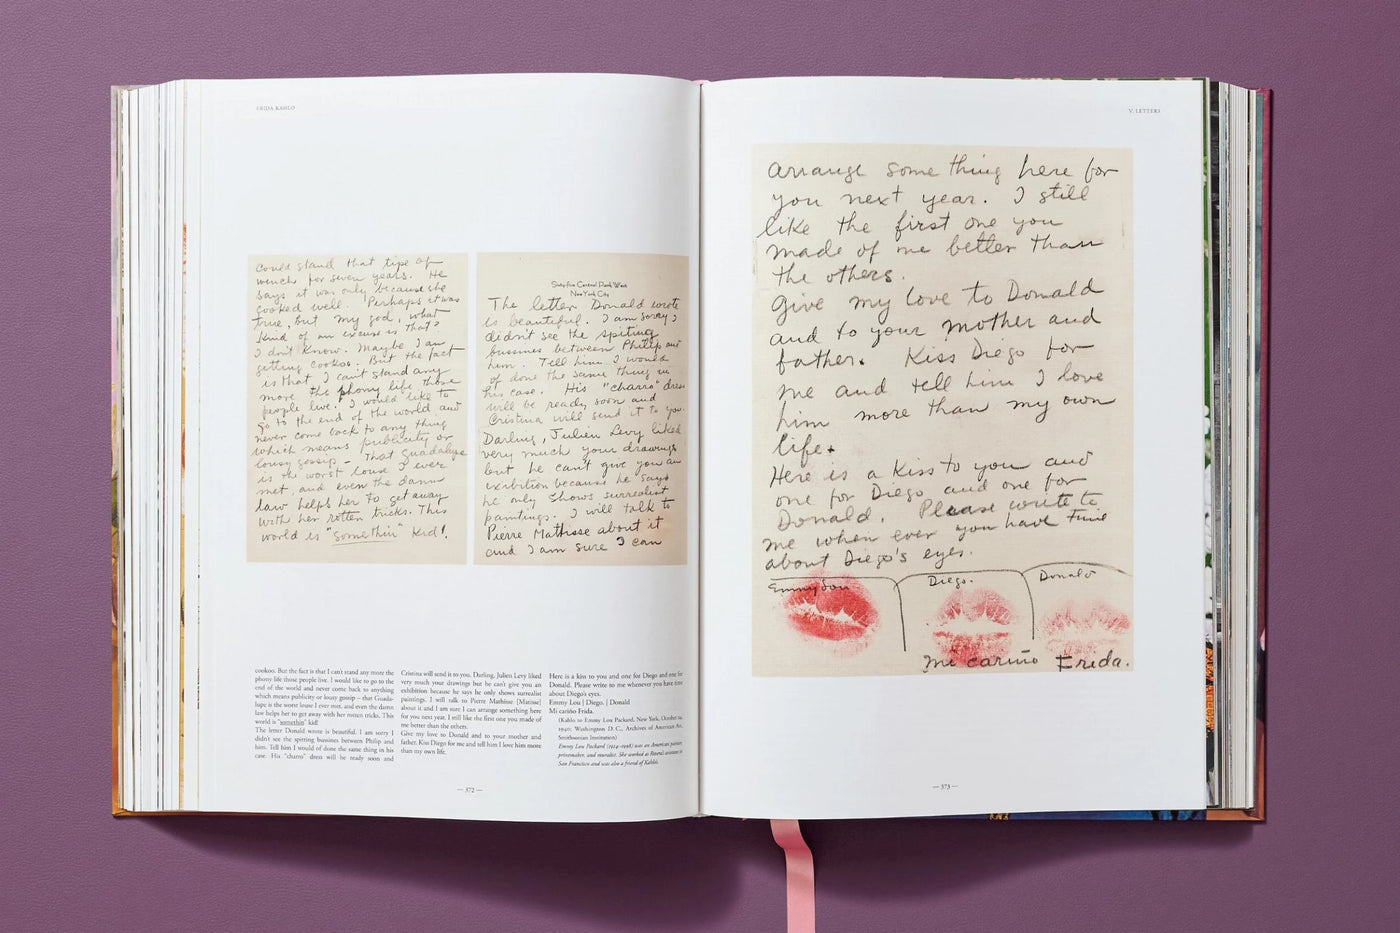 FRIDA KAHLO
could stand that tipe of
wench for seven years. He
says it was only because she
cooked well. Perhaps it was
true, but my god, what
kind of an excuse is that?
I don't know. Maybe I am
getting cookoo. But the fact
is that I can't stand any
more the phony life those
people live. I would like to
go to the end of the world and
never come back to any thing
which means publicity or
lousy gossip – That Guadalupe
is the worst louse I ever
met, and even the damn
law helps her to get away
with her rotten tricks. This
world is "somethin" kid!
Sixty-five Central Park West
New York City
The letter Donald wrote
is beautiful. I am sorry I
didn't see the spiting
bussines between Philip and
him. Tell him I would
of done the same thing in
his case. His "charro" dress
will be ready soon and
Cristina will send it to you.
Darling, Julien Levy liked
very much your drawings
but he can't give you an
exibition because he says
he only shows surrealist
paintings. I will talk to
Pierre Mathisse about it
and I am sure I can
cookoo. But the fact is that I can't stand any more the
phony life those people live. I would like to go to the
end of the world and never come back to anything
which means publicity or lousy gossip – that Guada-
lupe is the worst louse I ever met, and even the damn
law helps her to get away with her rotten tricks. This
world is "somethin" kid!
The letter Donald wrote is beautiful. I am sorry I
didn't see the spitting bussines between Philip and
him. Tell him I would of done the same thing in his
case. His "charro" dress will be ready soon and
Cristina will send it to you. Darling, Julien Levy liked
very much your drawings but he can't give you an
exhibition because he says he only shows surrealist
paintings. I will talk to Pierre Mathisse [Matisse]
about it and I am sure I can arrange something here
for you next year. I still like the first one you made of
me better than the others.
Give my love to Donald and to your mother and
father. Kiss Diego for me and tell him I love him more
than my own life.
Here is a kiss to you and one for Diego and one for
Donald. Please write to me whenever you have time
about Diego's eyes.
Emmy Lou | Diego. | Donald
Mi cariño Frida.
(Kahlo to Emmy Lou Packard, New York, October 24,
1940; Washington D. C., Archives of American Art,
Smithsonian Institution)
Emmy Lou Packard (1914–1998) was an American painter,
printmaker, and muralist. She worked as Rivera's assistant in
San Francisco and was also a friend of Kahlo's.
— 372 —
V. LETTERS
arrange some thing here for
you next year. I still
like the first one you
made of me better than
the others.
Give my love to Donald
and to your mother and
father. Kiss Diego for
me and tell him I love
him more than my own
life.
Here is a kiss to you and
one for Diego and one for
Donald. Please write to
me when ever you have time
about Diego's eyes.
Emmy Lou
Diego.
Donald
mi cariño Frida.
— 373 —